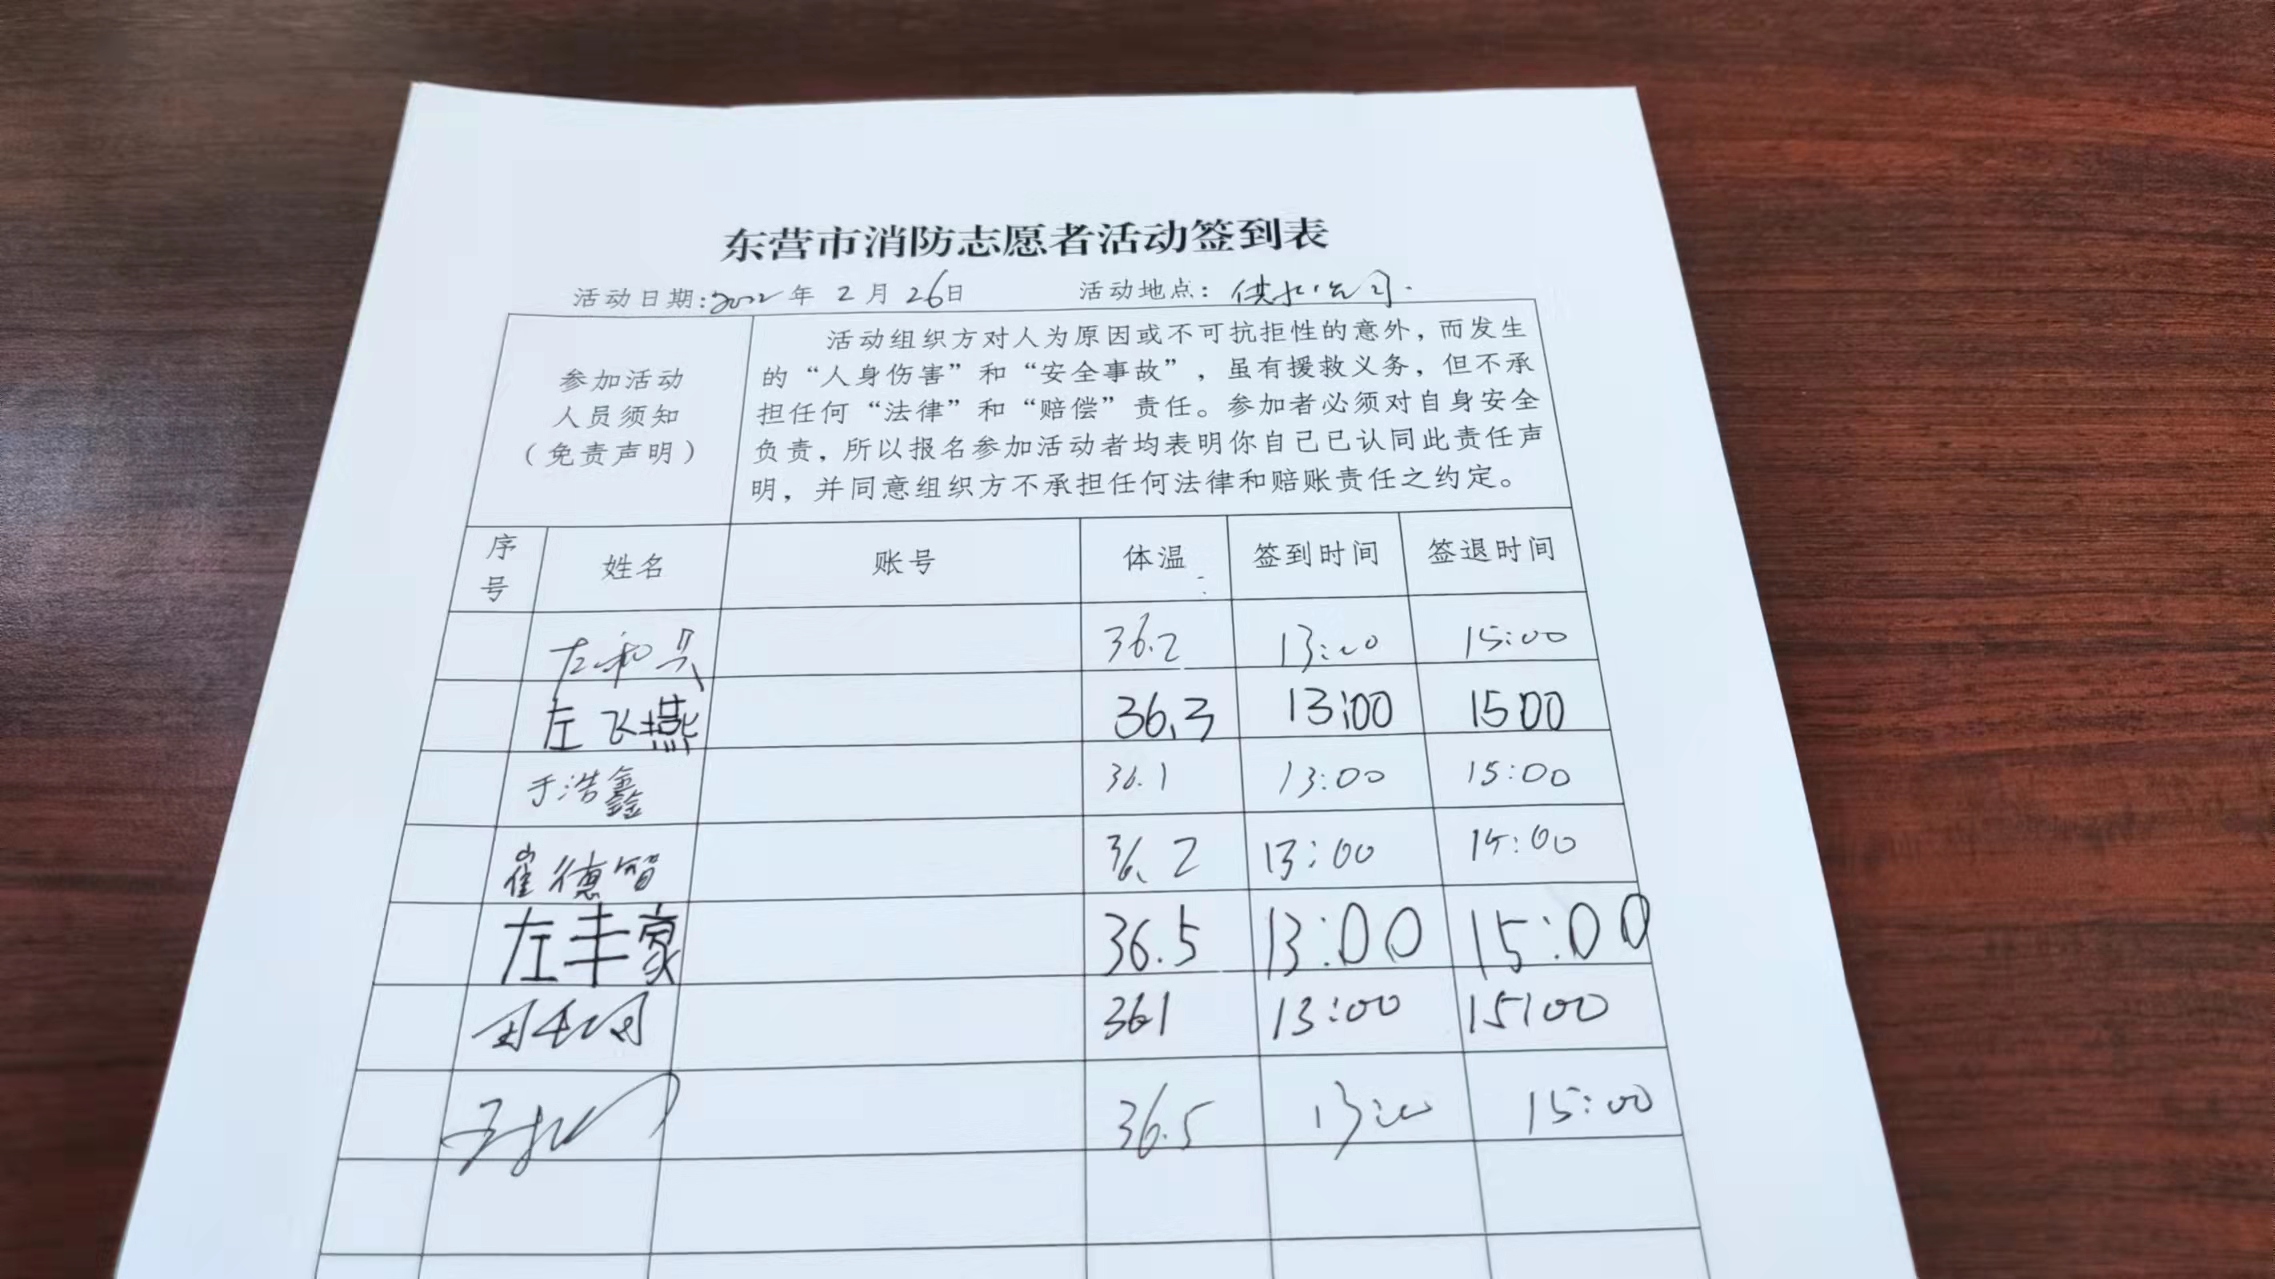 东营市消防志愿者活动签到表
活动日期:2022年 2月 26日 活动地点: 供水公司.
参加活动
人员须知
(免责声明)
活动组织方对人为原因或不可抗拒性的意外，而发生
的“人身伤害”和“安全事故”，虽有援救义务，但不承
担任何“法律”和“赔偿”责任。参加者必须对自身安全
负责，所以报名参加活动者均表明你自己已认同此责任声
明，并同意组织方不承担任何法律和赔账责任之约定。
序号 姓名 账号 体温 签到时间 签退时间
36.2 13:00 15:00
左飞燕 36.3 13:00 15:00
于浩鑫 36.1 13:00 15:00
崔德智 36.2 13:00 15:00
左丰豪 36.5 13:00 15:00
36.1 13:00 15:00
36.5 13:00 15:00